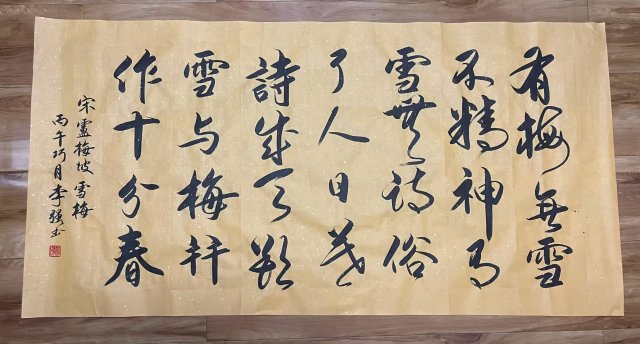 有梅無雪
不精神有
雪無诗俗
了人日暮
詩成天欲
雪与梅并
作十分春
宋盧梅坡雪梅
丙午巧月李强书